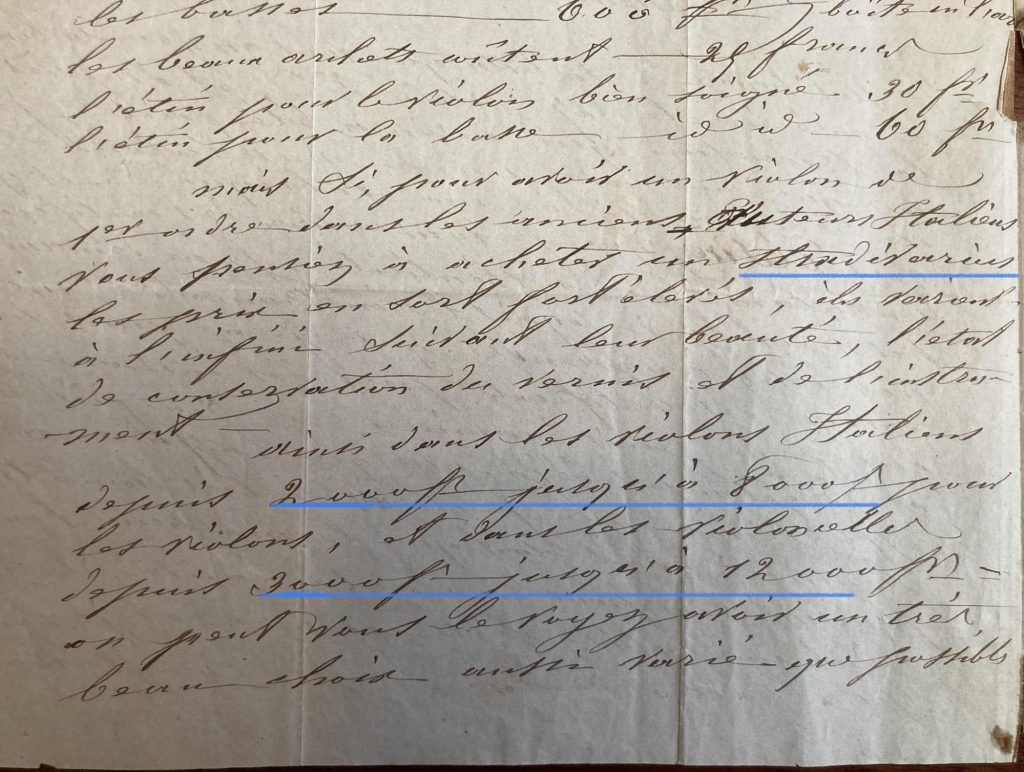 les basses — 600 fr boite en
les beaux archets coûtent — 25 francs
l'étui pour le violon bien soigné — 30 fr
l'étui pour la basse — id id — 60 fr
mais si, pour avoir un violon de
1er ordre dans les anciens auteurs Italiens
vous pensiez à acheter un Stradivarius
les prix en sont fort élevés, ils varient
à l'infini suivant leur beauté, l'état
de conservation du vernis et de l'instru-
-ment — ainsi dans les violons Italiens
depuis 2000fr jusqu'à 8000fr pour
les violons, et dans les violoncelles
depuis 3000fr jusqu'à 12000fr =
on peut vous le voyez avoir un très
beau choix aussi varié que possible